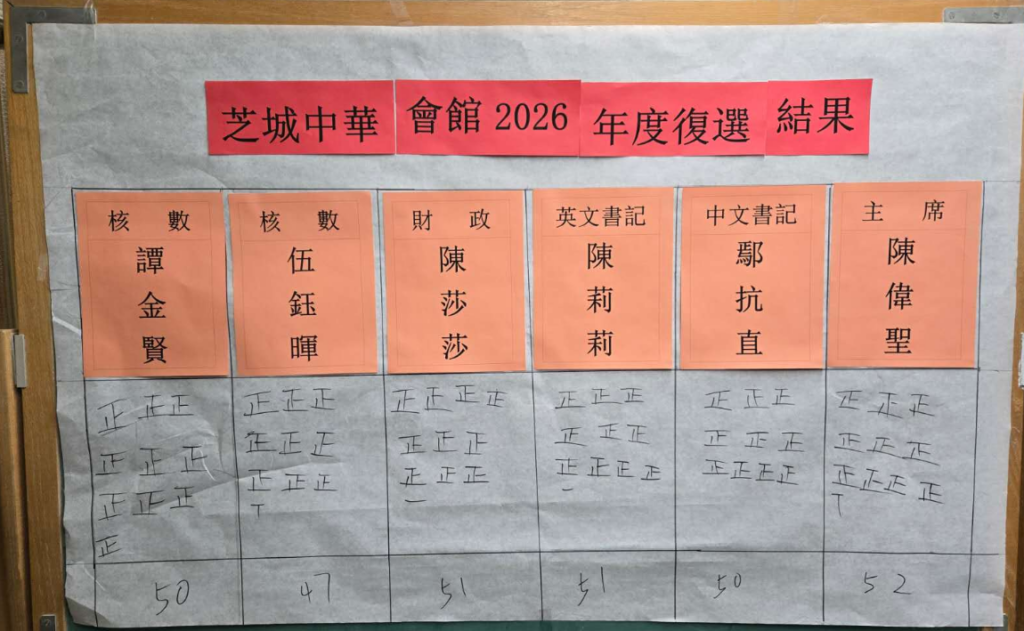 芝城中華會館2026年度復選結果
核數 核數 財政 英文書記 中文書記 主席
譚金賢 伍鈺暉 陳莎莎 陳莉莉 鄢抗直 陳偉聖
正 正正 正正正 正正正正 正正正 正正正 正正正
正 正 正 正正正 正正正 正 正正 正 正 正 正正正
正正正 正正正 正 正正 正 正正正 正正正正 正正正 正
正 丅 一 一 丅
50 47 51 51 50 52